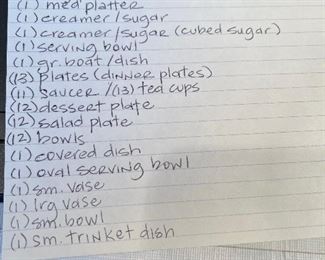 (1) med platter
(1) creamer/sugar
(1) creamer/sugar (cubed sugar)
(1) serving bowl
(1) gr. boat/dish
(13) plates (dinner plates)
(11) saucer /(13) tea cups
(12) dessert plate
(12) salad plate
(12) bowls
(1) covered dish
(1) oval serving bowl
(1) sm. vase
(1) lrg vase
(1) sm. bowl
(1) sm. trinket dish